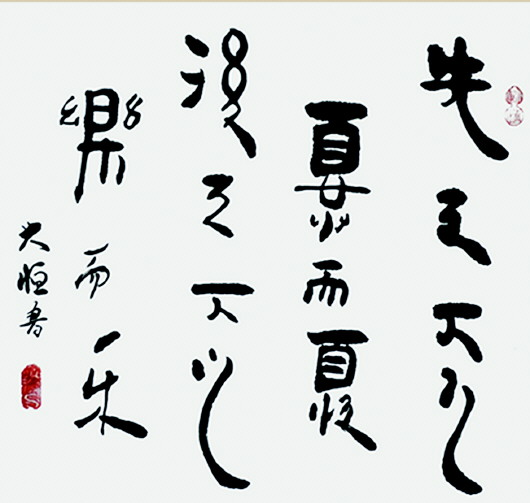 先天下之
憂而憂
後天下之
樂而乐
大恒書